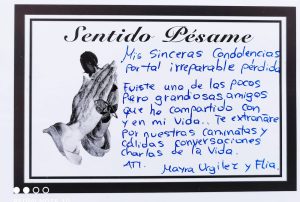 Sentido Pésame
Mis Sinceras Condolencias
por tal irreparable pérdida
Fuiste uno de los pocos
pero grandosos amigos
que ha compartido con
y en mi vida.. Te extrañare
por nuestras caminatas y
calidas conversaciones
charlas de la Vida.
Att. Mayra Urgilez y Flia.